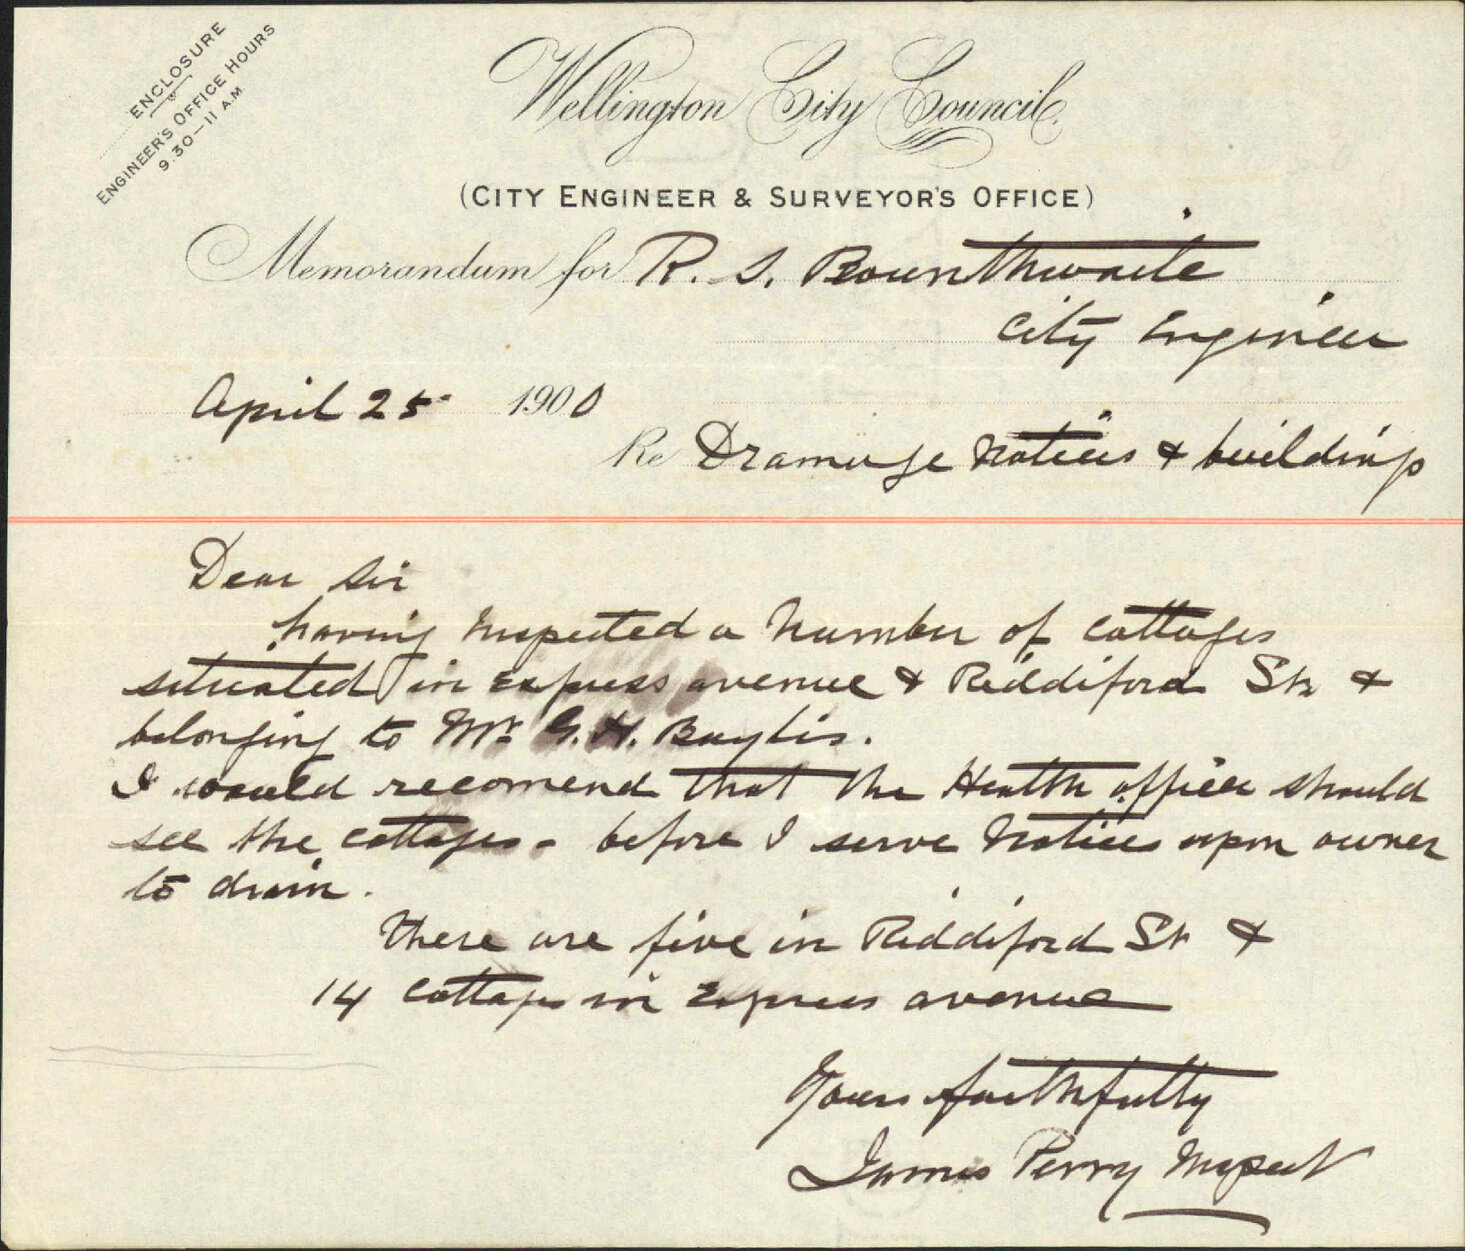 ENCLOSURE
&
ENGINEER'S OFFICE HOURS
9.30—11 A.M
Wellington City Council.
(CITY ENGINEER & SURVEYOR'S OFFICE)
Memorandum for R. S. Rounthwaite
City Engineer
April 25 1900
Re Drainage Notices & buildings
Dear Sir
having Inspected a Number of Cottages
situated in Express avenue & Riddiford St &
belonging to Mr G. H. Baylis.
I would recomend that the Health officer should
see the cottages - before I serve Notices upon owner
to drain.
There are five in Riddiford St &
14 Cottages in Express avenue
Yours faithfully
James Perry Inspect